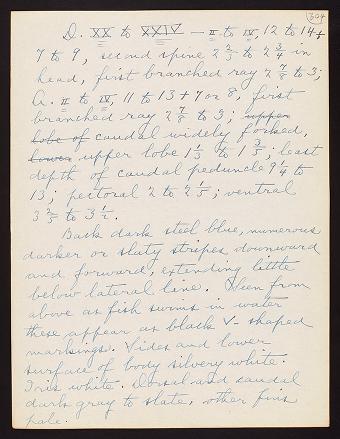 304
D. XX to XXIV – II to IV, 12 to 14+
7 to 9, second spine 2 2/5 to 2 3/4 in
head, first branched ray 2 7/8 to 3;
A. II to IV, 11 to 13 + 7 or 8, first
branched ray 2 7/8 to 3; upper
lobe of caudal widely forked,
lower upper lobe 1 1/3 to 1 3/5; least
depth of caudal peduncle 9 1/4 to
13; pectoral 2 to 2 1/5; ventral
3 2/5 to 3 1/2.
Back dark steel blue, numerous
darker or slaty stripes downward
and forward, extending little
below lateral line. When from
above as fish swims in water
these appear as black V-shaped
markings. Sides and lower
surface of body silvery white.
Iris white. Dorsal and caudal
dark gray to slate, other fins
pale.